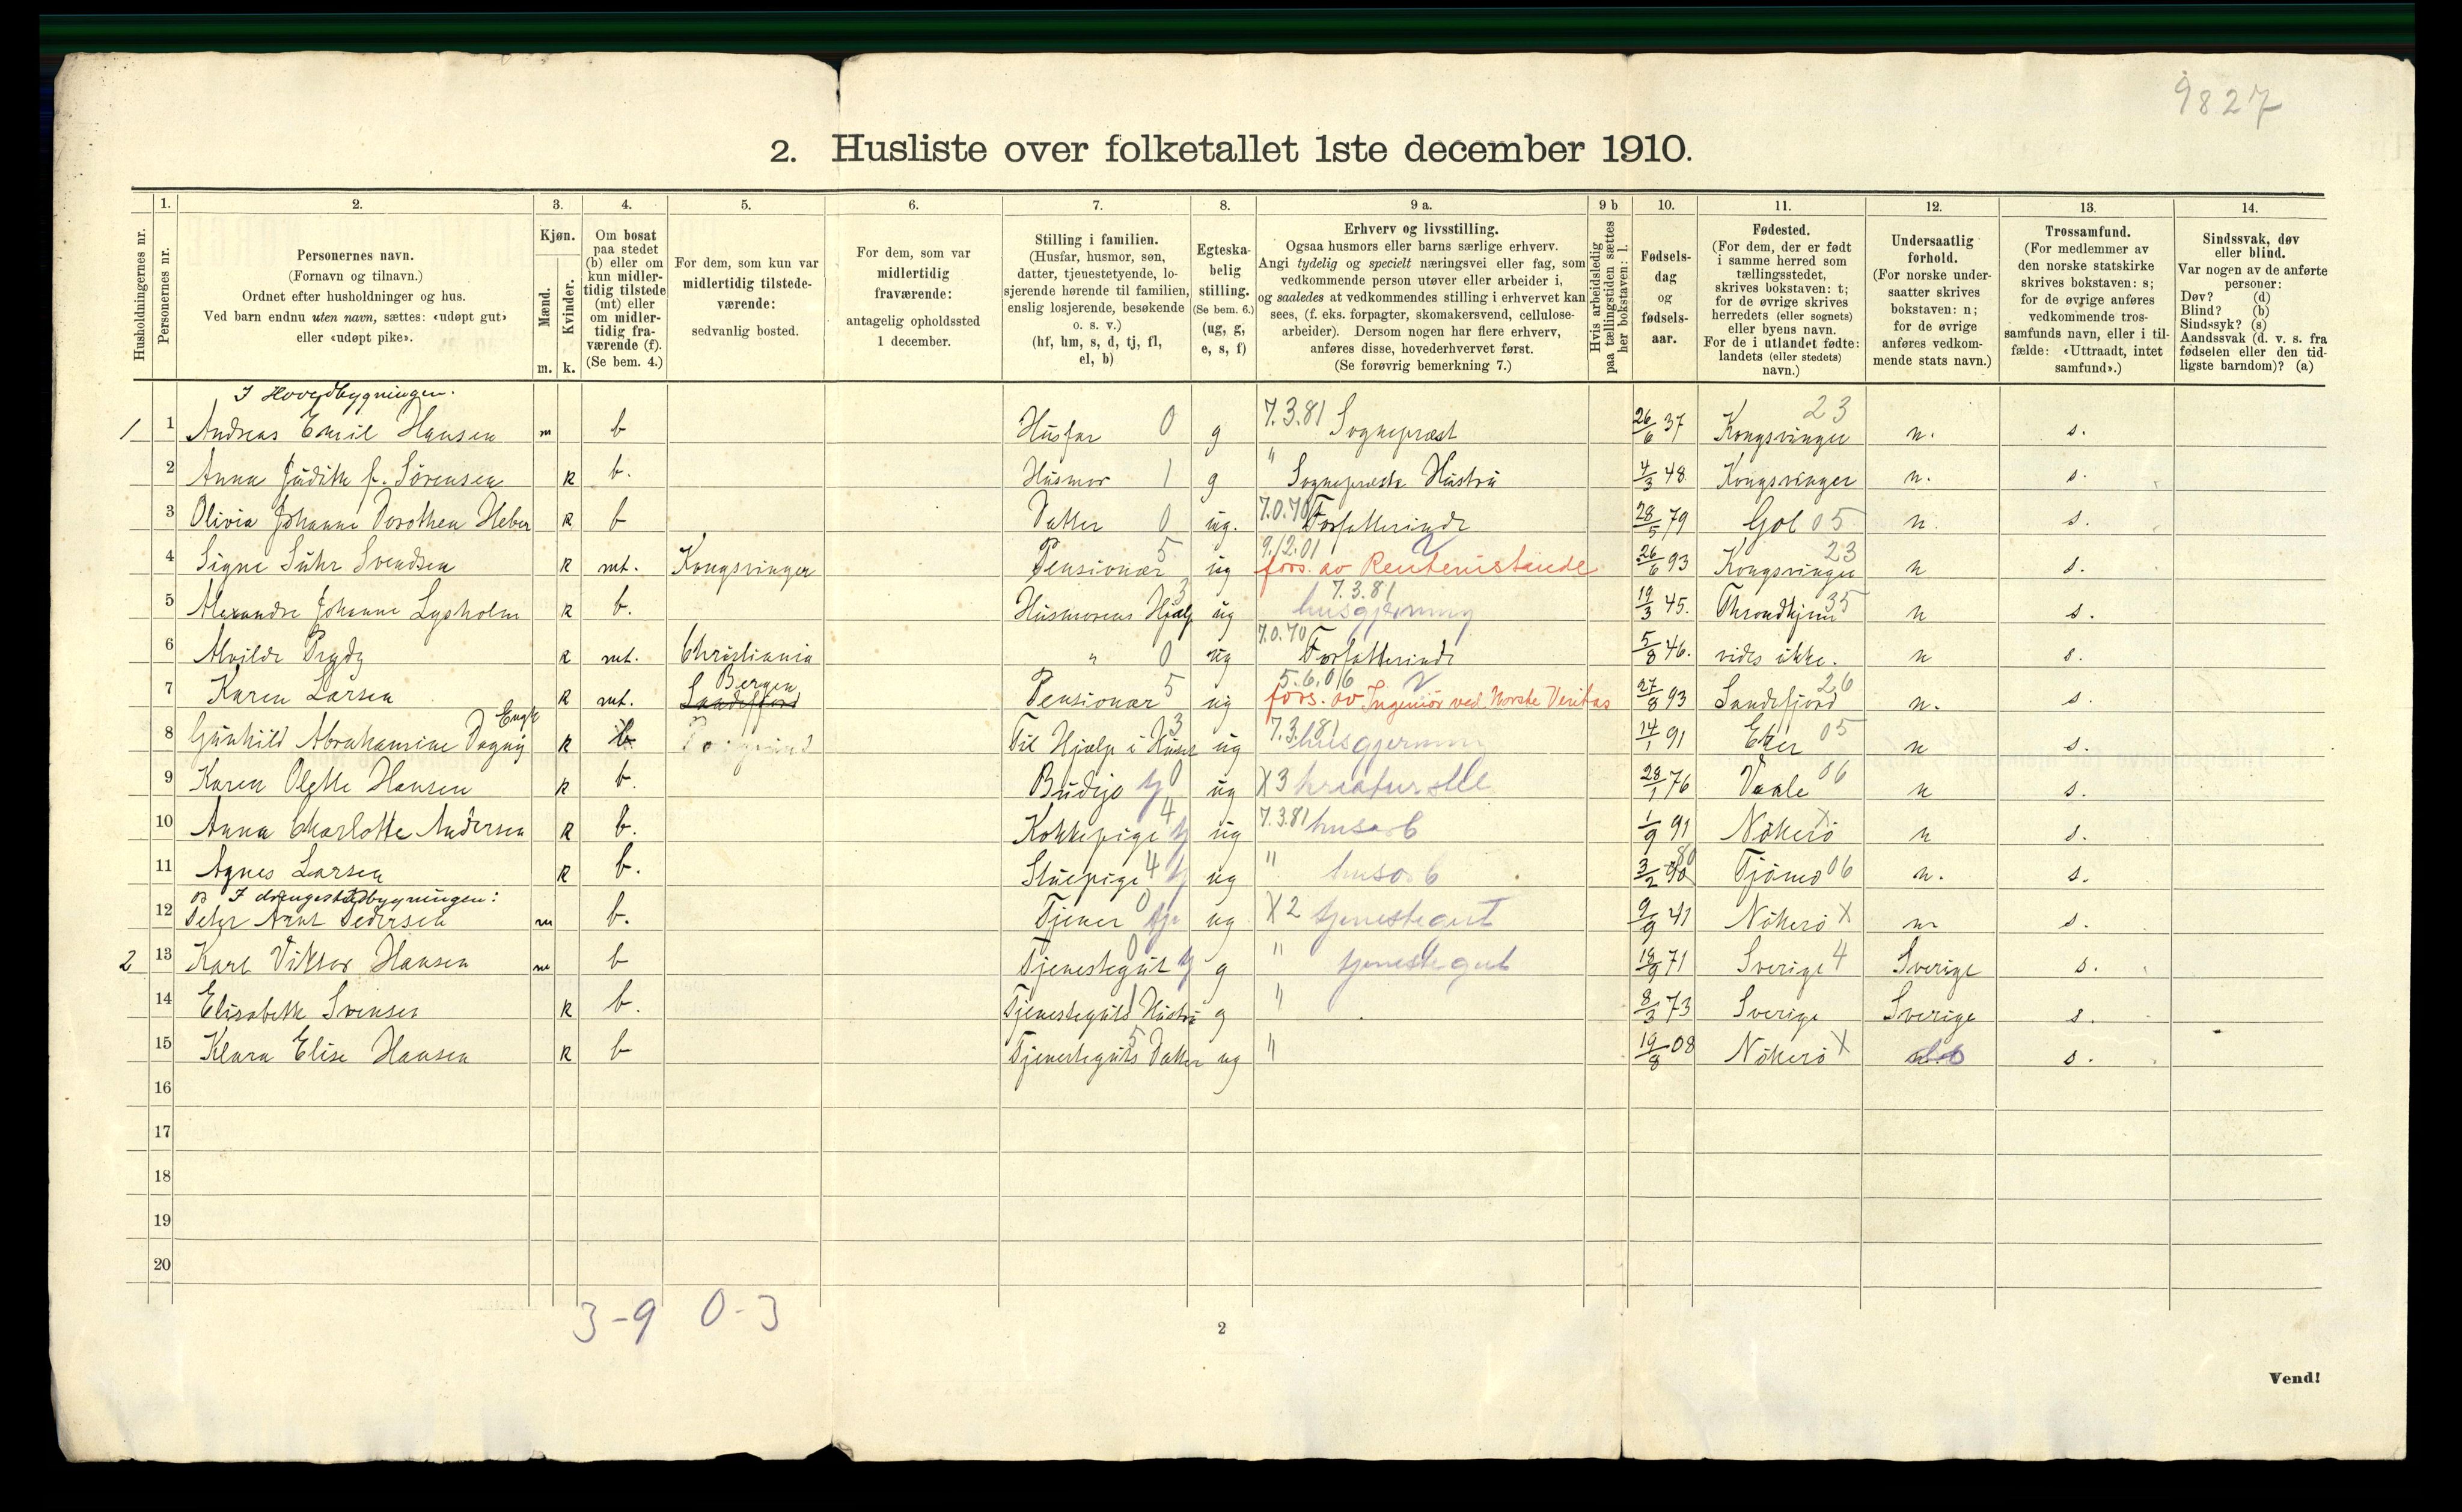 9827
2. Husliste over folketallet 1ste december 1910.
Husholdningernes nr.
1.
Personernes nr.
2.
Personernes navn.
(Fornavn og tilnavn.)
Ordnet efter husholdninger og hus.
Ved barn endnu uten navn, sættes: «udøpt gut»
eller «udøpt pike».
3.
Kjøn.
Mænd.
Kvinder.
m. k.
4.
Om bosat
paa stedet
(b) eller om
kun midler-
tidig tilstede
(mt) eller
om midler-
tidig fra-
værende (f).
(Se bem. 4.)
5.
For dem, som kun var
midlertidig tilstede-
værende:
sedvanlig bosted.
6.
For dem, som var
midlertidig
fraværende:
antagelig opholdssted
1 december.
7.
Stilling i familien.
(Husfar, husmor, søn,
datter, tjenestetyende, lo-
sjerende hørende til familien,
enslig losjerende, besøkende
o. s. v.)
(hf, hm, s, d, tj, fl,
el, b)
8.
Egteska-
belig
stilling.
(Se bem. 6.)
(ug, g,
e, s, f)
9 a.
Erhverv og livsstilling.
Ogsaa husmors eller barns særlige erhverv.
Angi tydelig og specielt næringsvei eller fag, som
vedkommende person utøver eller arbeider i,
og saaledes at vedkommendes stilling i erhvervet kan
sees, (f. eks. forpagter, skomakersvend, cellulose-
arbeider). Dersom nogen har flere erhverv,
anføres disse, hovederhvervet først.
(Se forøvrig bemerkning 7.)
9 b
Hvis arbeidsledig
paa tællingstiden sættes
her bokstaven: l.
10.
Fødsels-
dag
og
fødsels-
aar.
11.
Fødested.
(For dem, der er født
i samme herred som
tællingsstedet,
skrives bokstaven: t;
for de øvrige skrives
herredets (eller sognets)
eller byens navn.
For de i utlandet fødte:
landets (eller stedets)
navn.)
12.
Undersaatlig
forhold.
(For norske under-
saatter skrives
bokstaven: n;
for de øvrige
anføres vedkom-
mende stats navn.)
13.
Trossamfund.
(For medlemmer av
den norske statskirke
skrives bokstaven: s;
for de øvrige anføres
vedkommende tros-
samfunds navn, eller i til-
fælde: «Uttraadt, intet
samfund».)
14.
Sindssvak, døv
eller blind.
Var nogen av de anførte
personer:
Døv? (d)
Blind? (b)
Sindssyk? (s)
Aandssvak (d. v. s. fra
fødselen eller den tid-
ligste barndom)? (a)
I Hovedbygningen.
1 1 Andreas Emil Hansen m b Husfar 0 g 7.3.81 Sogneprest 26/6 37 Kongsvinger 23 n. s.
2 Anna Judith f. Sørensen k b. Husmor 1 g " Sogneprests Hustru 4/3 48 Kongsvinger n. s.
3 Olivia Johanne Dorothea Heber k b Datter 0 ug. 7.0.70 Forfatterinde 28/5 79 Gol 05 n. s.
4 Signe Suhr Svendsen k mt. Kongsvinger Pensionær 5 ug 9.12.01 fors. av Rentenistinde 26/6 93 Kongsvinger 23 n s.
5 Alexandra Johanne Lysholm k b. Husmorens Hjælp 3 ug 7.3.81 husgjerning 19/3 45. Throndhjem 35 n s.
6 Alvilde Prydz k mt. Christiania " 0 ug 7.0.70 Forfatterinde 5/8 46. vides ikke. n s.
7 Karen Larsen k mt. Bergen Sandefjord Pensionær 5 ug 5.6.016 fors. av Ingeniør ved Norske Veritas 27/8 93 Sandefjord 26 n. s.
8 Gunhild Abrahamine Dagny Engh k b Til Hjælp i Huset 3 ug 7.3.81 husgjerning 14/1 91 Eker 05 n s.
9 Karen Olette Hansen k b. Budeje tj 0 ug X3 kreaturstel 28/1 76 Vaale 06 n s.
10 Anna Charlotte Andersen k b. Kokkepige tj 4 ug 7.3.81 husarb 1/9 91 Nøtterø X n s.
11 Agnes Larsen k b. Stuepige 4 tj ug " husarb 3/2 90 Tjømø 06 n. s.
I drengestubygningen:
12 Peter Arnt Pedersen m b. Tjener 0 tj ug X2 tjenestegut 9/9 41 Nøtterø X n s.
2 13 Karl Viktor Hansen m b Tjenestegut 0 tj g " tjenestegut 19/9 71 Sverige 4 Sverige s.
14 Elisabeth Svensen k b. Tjenesteguts Hustru 1 g " 8/3 73 Sverige Sverige s.
15 Klara Elise Hansen k b Tjenesteguts Datter 5 ug " 19/8 08 Nøtterø X s.
16
17
18
19
20
3-9 0-3
2
Vend!